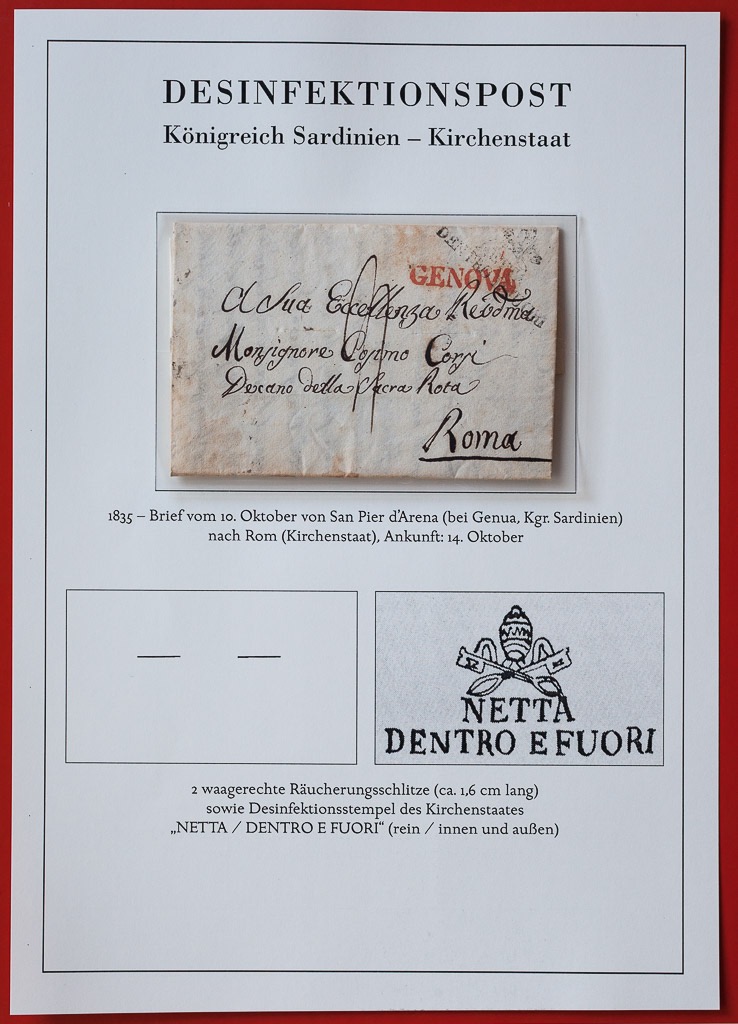 DESINFEKTIONSPOST
Königreich Sardinien – Kirchenstaat
GENOVA
A Sua Eccellenza Revd̃ma
Monsignore Cosimo Corsi
Decano della Sacra Rota
Roma
1835 – Brief vom 10. Oktober von San Pier d'Arena (bei Genua, Kgr. Sardinien)
nach Rom (Kirchenstaat), Ankunft: 14. Oktober
NETTA
DENTRO E FUORI
2 waagerechte Räucherungsschlitze (ca. 1,6 cm lang)
sowie Desinfektionsstempel des Kirchenstaates
„NETTA / DENTRO E FUORI“ (rein / innen und außen)